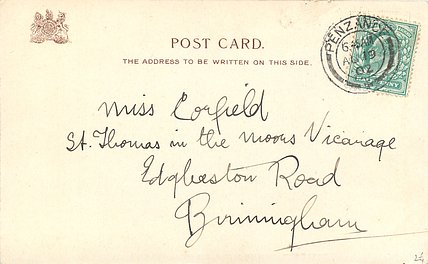 POST CARD.
THE ADDRESS TO BE WRITTEN ON THIS SIDE.
PENZANC
AU 19
02
Miss Corfield
St. Thomas in the Moors Vicarage
Edgbaston Road
Birmingham